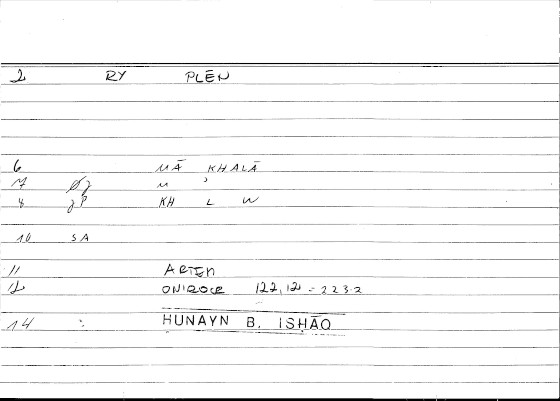 2 RY PLĒN
6 MĀ KHALĀ
7 M '
8 JP KH L W
10 SA
11 ARTEM
12 ONIROCR 122,12 - 223.2
14 : HUNAYN B. ISḤĀQ